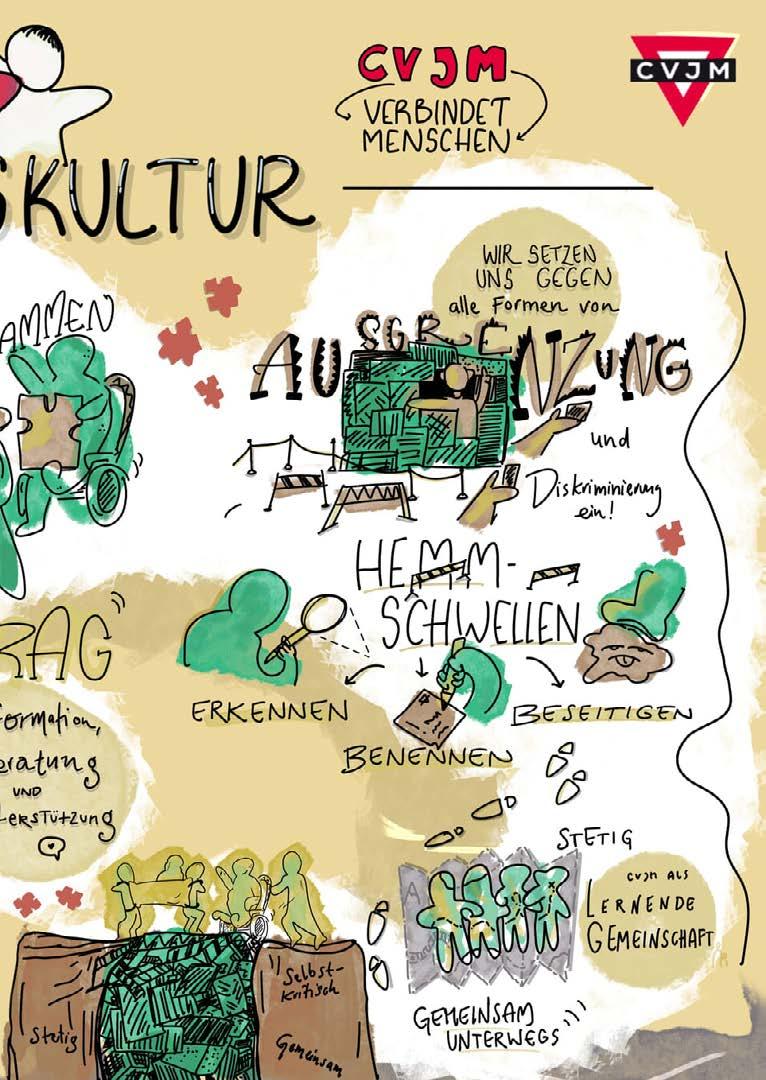 CVJM
VERBINDET
MENSCHEN
CVJM
SKULTUR
WIR SETZEN
UNS GEGEN
alle Formen von
AUSGRENZUNG
und
Diskriminierung
ein!
AMMEN
HEMM-
SCHWELLEN
ERKENNEN
BENENNEN
BESEITIGEN
RAG
formation,
eratung
UND
terstützung
STETIG
CVJM ALS
LERNENDE
GEMEINSCHAFT
Selbst-
kritisch
Stetig
Gemeinsam
GEMEINSAM
UNTERWEGS